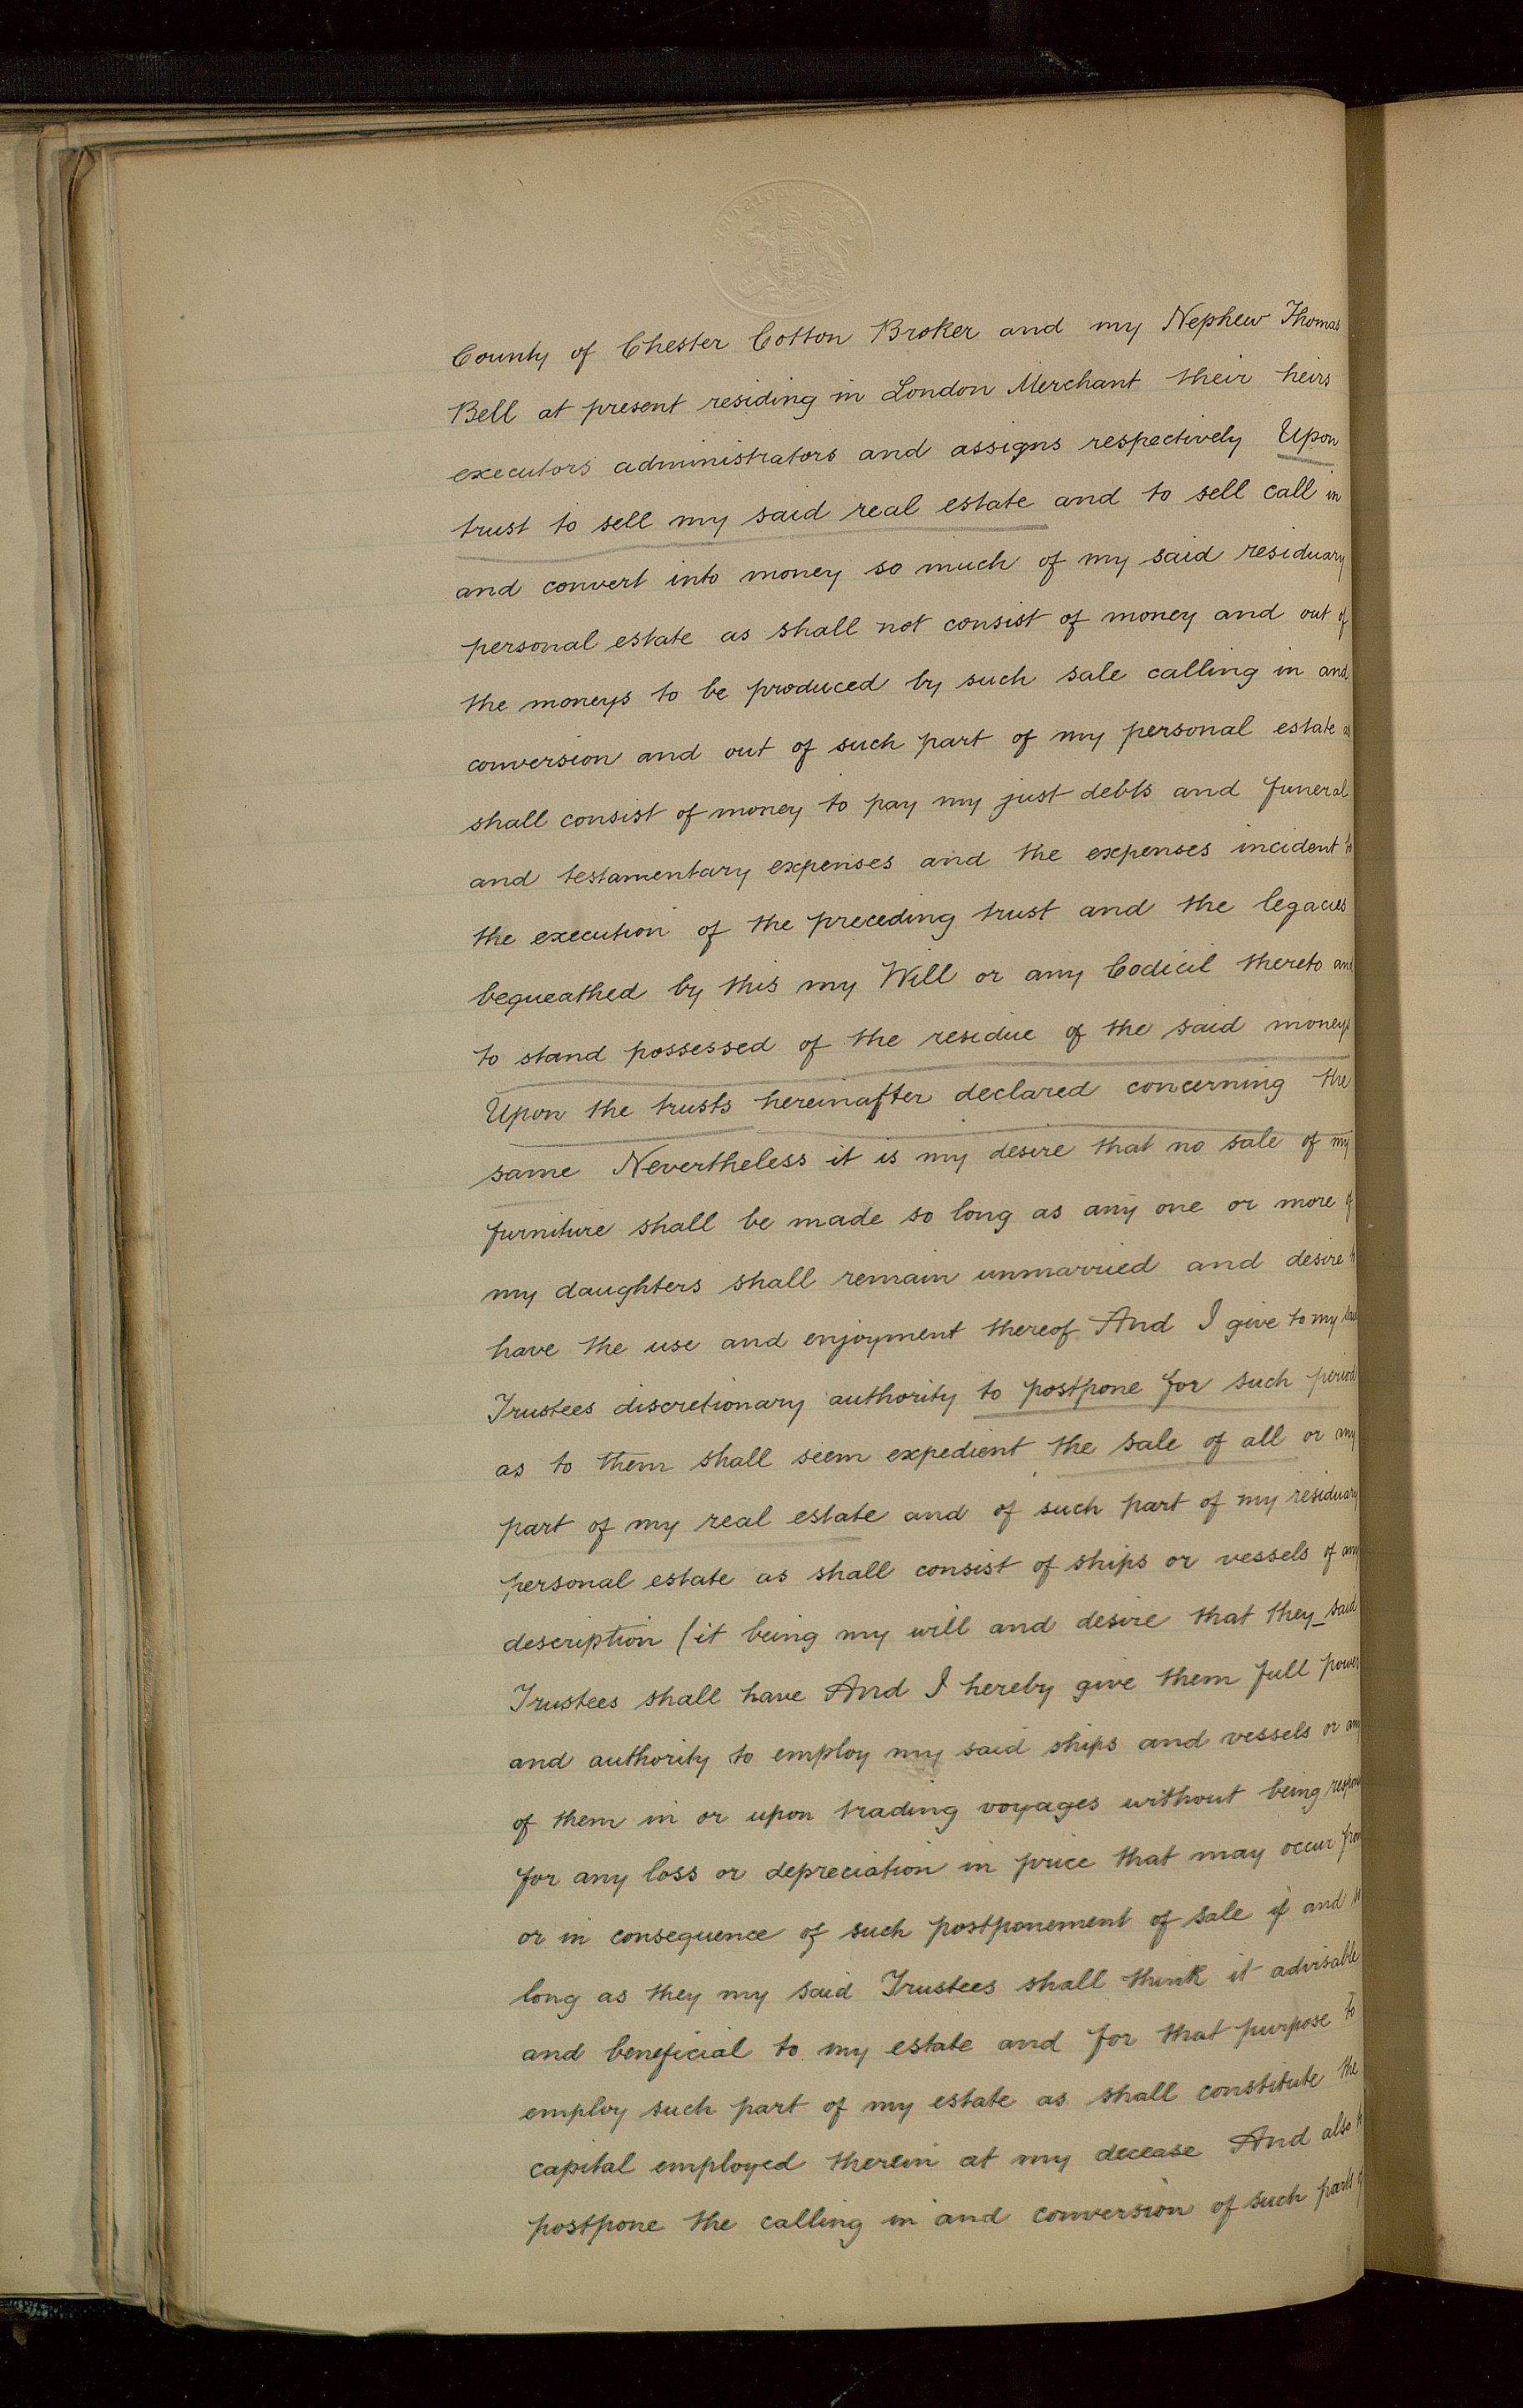 County of Chester Cotton Broker and my Nephew Thomas
Bell at present residing in London Merchant their heirs
executors administrators and assigns respectively Upon
trust to sell my said real estate and to sell call in
and convert into money so much of my said residuary
personal estate as shall not consist of money and out of
the moneys to be produced by such sale calling in and
conversion and out of such part of my personal estate as
shall consist of money to pay my just debts and funeral
and testamentary expenses and the expenses incident to
the execution of the preceding trust and the legacies
bequeathed by this my Will or any Codicil thereto and
to stand possessed of the residue of the said moneys
Upon the trusts hereinafter declared concerning the
same Nevertheless it is my desire that no sale of my
furniture shall be made so long as any one or more of
my daughters shall remain unmarried and desire to
have the use and enjoyment thereof And I give to my said
Trustees discretionary authority to postpone for such period
as to them shall seem expedient the sale of all or any
part of my real estate and of such part of my residuary
personal estate as shall consist of ships or vessels of any
description (it being my will and desire that they said
Trustees shall have And I hereby give them full power
and authority to employ my said ships and vessels or any
of them in or upon trading voyages without being
for any loss or depreciation in price that may occur from
or in consequence of such postponement of sale if and so
long as they my said Trustees shall think it advisable
and beneficial to my estate and for that purpose to
employ such part of my estate as shall constitute the
capital employed therein at my decease And also to
postpone the calling in and conversion of such parts of